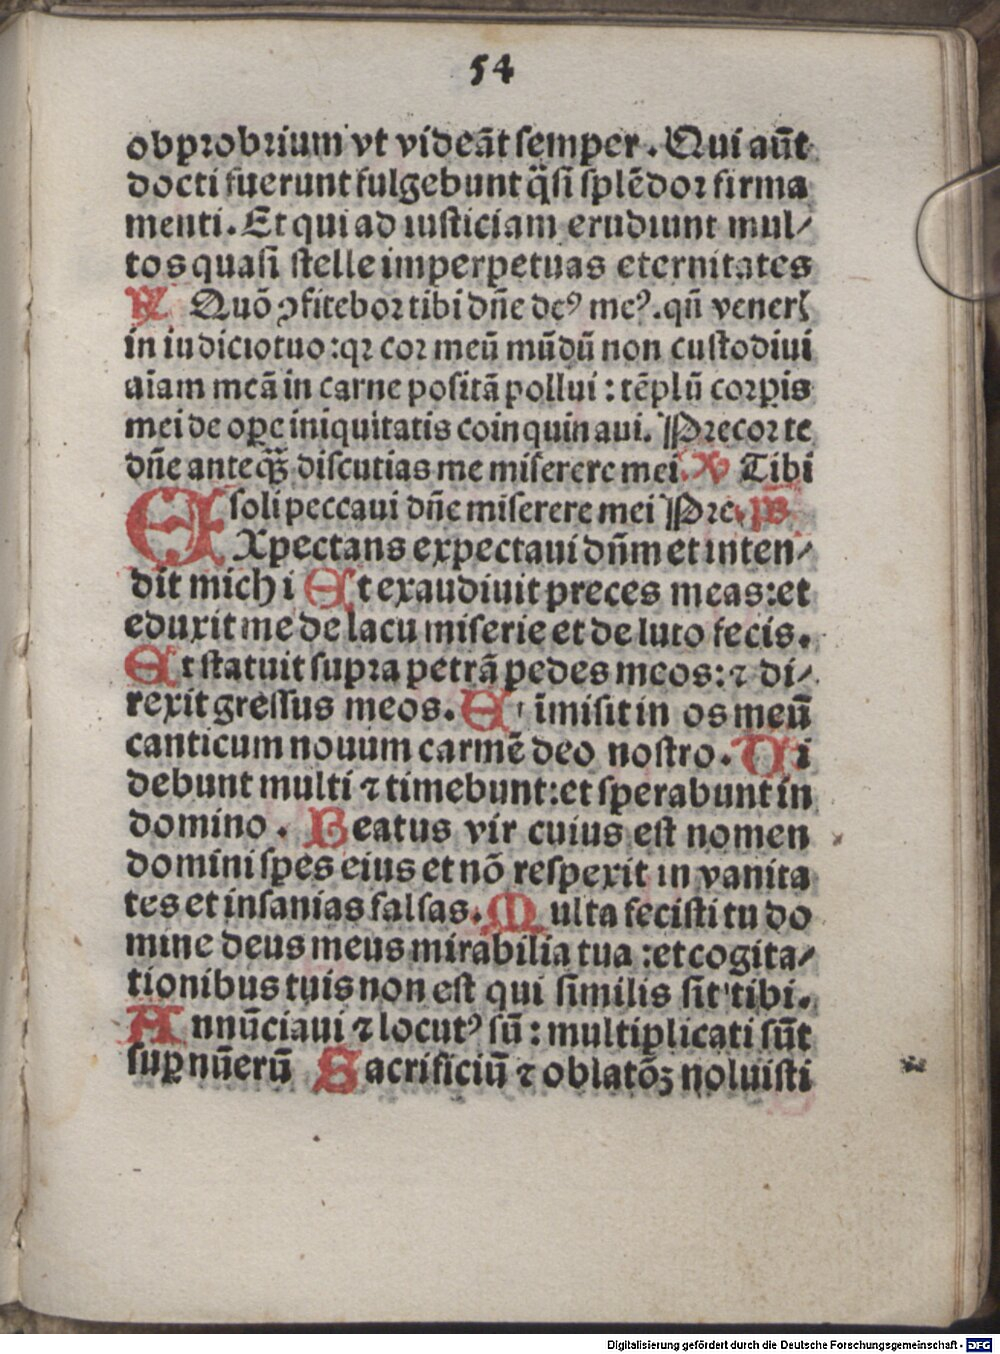 54
obprobrium vt videāt semper. Qui aūt
docti fuerunt fulgebunt q̄si splēdor firma
menti. Et qui ad iusticiam erudiunt mul⸗
tos quasi stelle imperpetuas eternitates
R̷ Quō ꝯfitebor tibi dn̄e deꝰ meꝰ. qn̄ venerꝭ
in iudicio tuo: qꝛ cor meū mūdū non custodiui
aīam meā in carne positā pollui: tēplū corꝑis
mei de oꝑe iniquitatis coinquinaui. Precor te
dn̄e anteq̄ꝫ discutias me miserere mei. V̷ Tibi
soli peccaui dn̄e miserere mei Pre. ps̄
EXpectans expectaui dn̄m et inten⸗
dit michi Et exaudiuit preces meas: et
eduxit me de lacu miserie et de luto fecis.
Et statuit supra petrā pedes meos: ⁊ di⸗
rexit gressus meos. Et īmisit in os meū
canticum nouum carmē deo nostro. Vi
debunt multi ⁊ timebunt: et sperabunt in
domino. Beatus vir cuius est nomen
domini spes eius et nō respexit in vanita
tes et insanias falsas. Multa fecisti tu do
mine deus meus mirabilia tua: et cogita⸗
tionibus tuis non est qui similis sit tibi.
Annūciaui ⁊ locutꝰ sū: multiplicati sūt
suꝑ nūerū Sacrificiū ⁊ oblatōꝫ noluisti
Digitalisierung gefördert durch die Deutsche Forschungsgemeinschaft - DFG